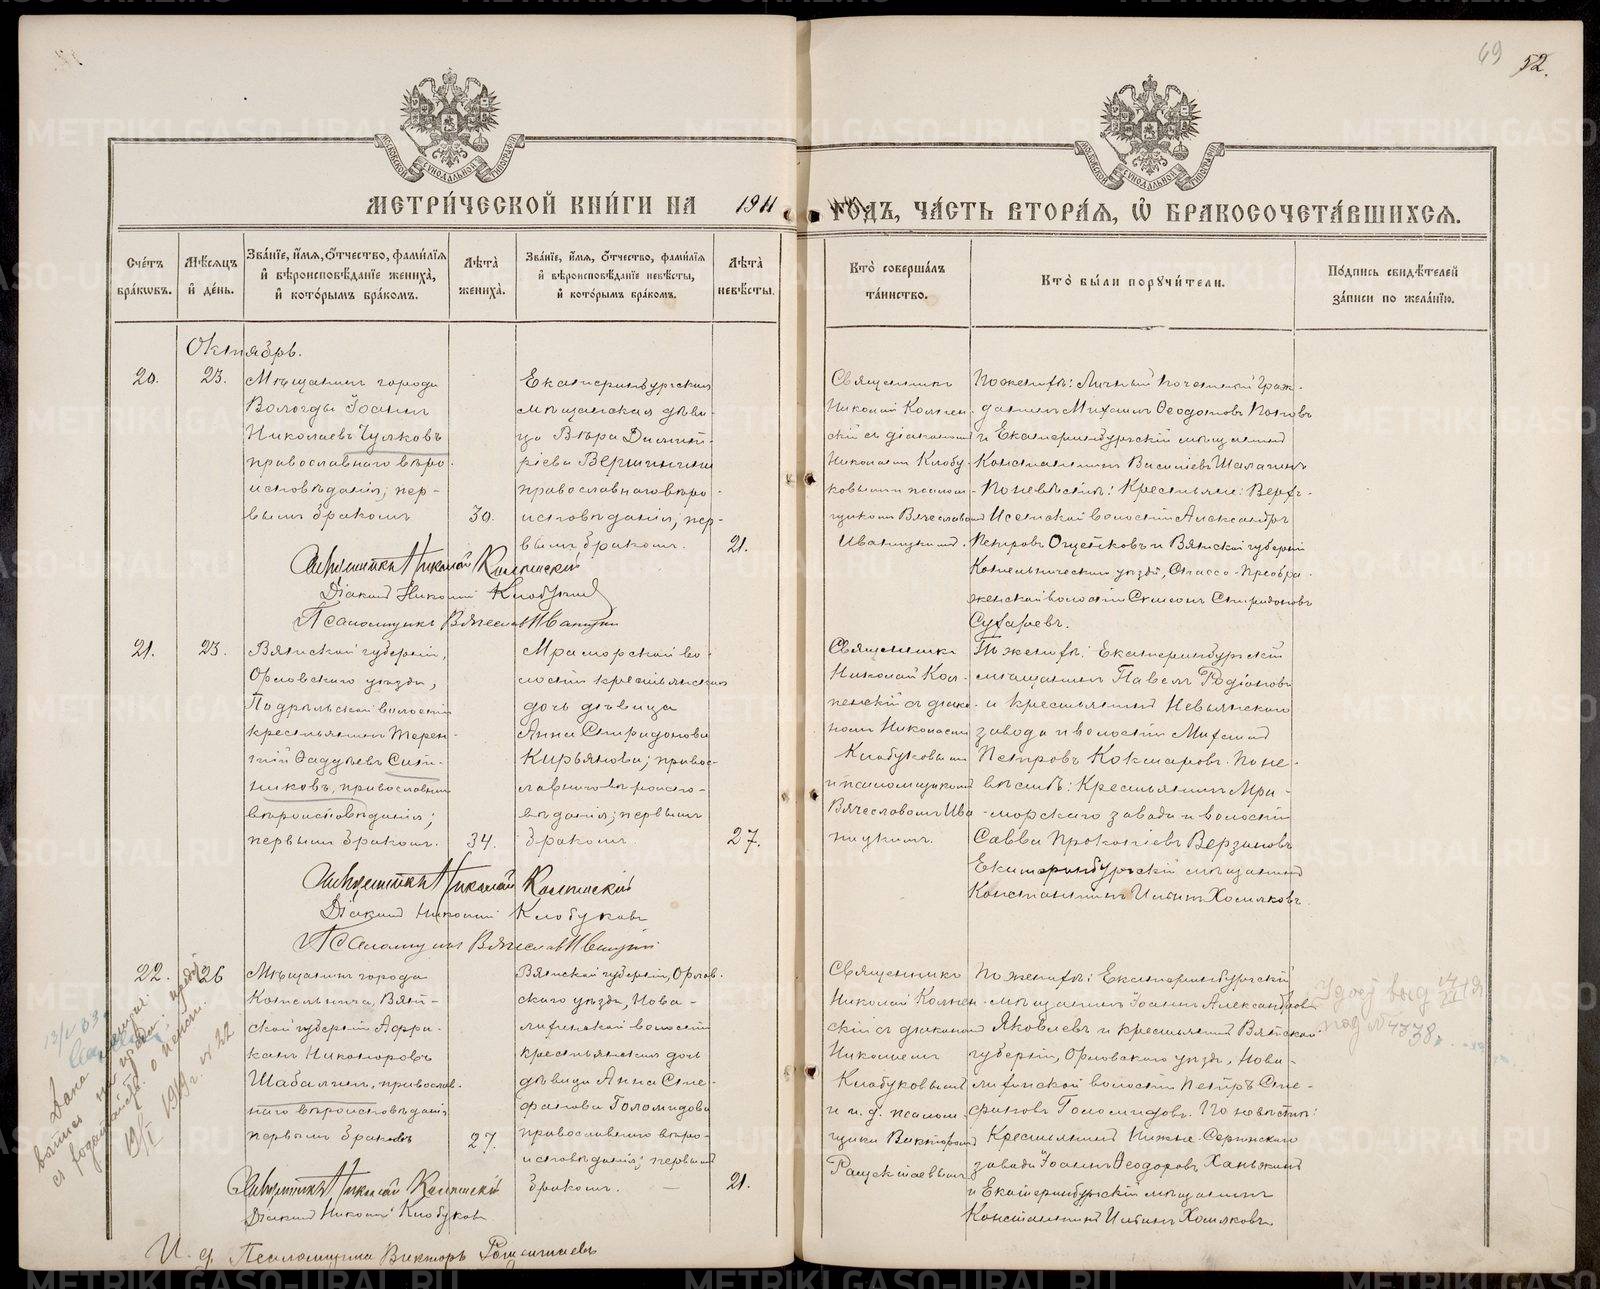 69 52.
МЕТРИ́ЧЕСКОЙ КНИ́ГИ НА 1911 ГОДЪ, ЧА́СТЬ ВТОРА́Я, Ѡ БРАКОСОЧЕТА́ВШИХСЯ.
Сче́тъ бра́кωвъ.
Мѣ́сяцъ и҆ де́нь.
Зва́нїе, и҆́мя, ѻ҆́тчество, фами́лїя
и҆ вѣроисповѣ́данїе жениха̀,
и҆ кото́рымъ бра́комъ.
Лѣта̀ жениха̀.
Зва́нїе, и҆́мя, ѻ҆́тчество, фами́лїя
и҆ вѣроисповѣ́данїе невѣ́сты,
и҆ кото́рымъ бра́комъ.
Лѣта̀ невѣ́сты.
Кто̀ соверша́лъ
та́инство.
Кто̀ бы́ли порꙋчи́тели.
По́дпись свидѣ́телей
за́писи по жела́нїю.
Октябрь.
20.
23.
Мѣщанинъ города
Вологды Іоаннъ
Николаевъ Чулковъ
православнаго вѣро-
исповѣданія; пер-
вымъ бракомъ
30.
Екатеринбургская
мѣщанская дѣви-
ца Вѣра Димит-
ріева Вершинина
православнаго вѣро-
исповѣданія, пер-
вымъ бракомъ.
21.
Священникъ
Николай Колпен-
скій съ діакономъ
Николаемъ Клобу-
ковымъ и псалом-
щикомъ Вячеславомъ
Иваницкимъ.
По женихѣ: Личный почетный граж-
данинъ Михаилъ Ѳеодотовъ Поповъ
и Екатеринбургскій мѣщанинъ
Константинъ Васильевъ Шалагинъ
По невѣстѣ: Крестьяне: Верхъ-
Исетской волости Александръ
Петровъ Ощепковъ и Вятской губерніи
Котельническаго уѣзда, Спассо-Преобра-
женской волости Симеонъ Спиридоновъ
Сухаревъ.
Священникъ Николай Колпенскій
Діаконъ Николай Клобуковъ
Псаломщикъ Вячеславъ Иваницкій
21.
23.
Вятской губерніи,
Орловскаго уѣзда,
Подрѣльской волости
крестьянинъ Терен-
тій Ѳаддѣевъ Сит-
никовъ, православнаго
вѣроисповѣданія;
первымъ бракомъ.
34.
Мраморской во-
лости крестьянская
дочь дѣвица
Анна Спиридонова
Кирьянова; правос-
лавнаго вѣроиспо-
вѣданія; первымъ
бракомъ.
27.
Священникъ
Николай Кол-
пенскій съ діако-
номъ Николаемъ
Клобуковымъ
и псаломщикомъ
Вячеславомъ Ива-
ницкимъ.
По женихѣ: Екатеринбургскій
мѣщанинъ Павелъ Родіоновъ
и крестьянинъ Невьянскаго
завода и волости Михаилъ
Петровъ Кокшаровъ. По не-
вѣстѣ: Крестьянинъ Мра-
морскаго завода и волости
Савва Прокопіевъ Верзаковъ
Екатеринбургскій мѣщанинъ
Константинъ Ильинъ Хомяковъ.
Священникъ Николай Колпенскій
Діаконъ Николай Клобуковъ
Псаломщикъ Вячеславъ Иваницкій
22.
26
Мѣщанинъ города
Котельнича, Вят-
ской губерніи Афри-
канъ Никаноровъ
Шабалинъ, православ-
наго вѣроисповѣданія
первымъ бракомъ
27.
Вятской губерніи, Орлов-
скаго уѣзда, Нова-
лифинской волости
крестьянская дочь
дѣвица Анна Сте-
фанова Голомидова
православнаго вѣро-
исповѣданія; первымъ
бракомъ. —
21.
Священникъ
Николай Колпен-
скій съ діакономъ
Николаемъ
Клобуковымъ
и и. д. псалом-
щика Викторомъ
По женихѣ: Екатеринбургскій
мѣщанинъ Іоаннъ Александровъ
Яковлевъ и крестьянинъ Вятской
губерніи, Орловскаго уѣзда, Нова-
лифинской волости Петръ Сте-
фановъ Голомидовъ. По невѣстѣ:
Крестьянинъ Нижне-Сергинскаго
завода Іоаннъ Ѳеодоровъ Ханжинъ
и Екатеринбургскій мѣщанинъ
Константинъ Ильинъ Хомяковъ.
Священникъ Николай Колпенскій
Діаконъ Николай Клобуковъ
И. д. Псаломщика Викторъ
METRIKI.GASO-URAL.RU